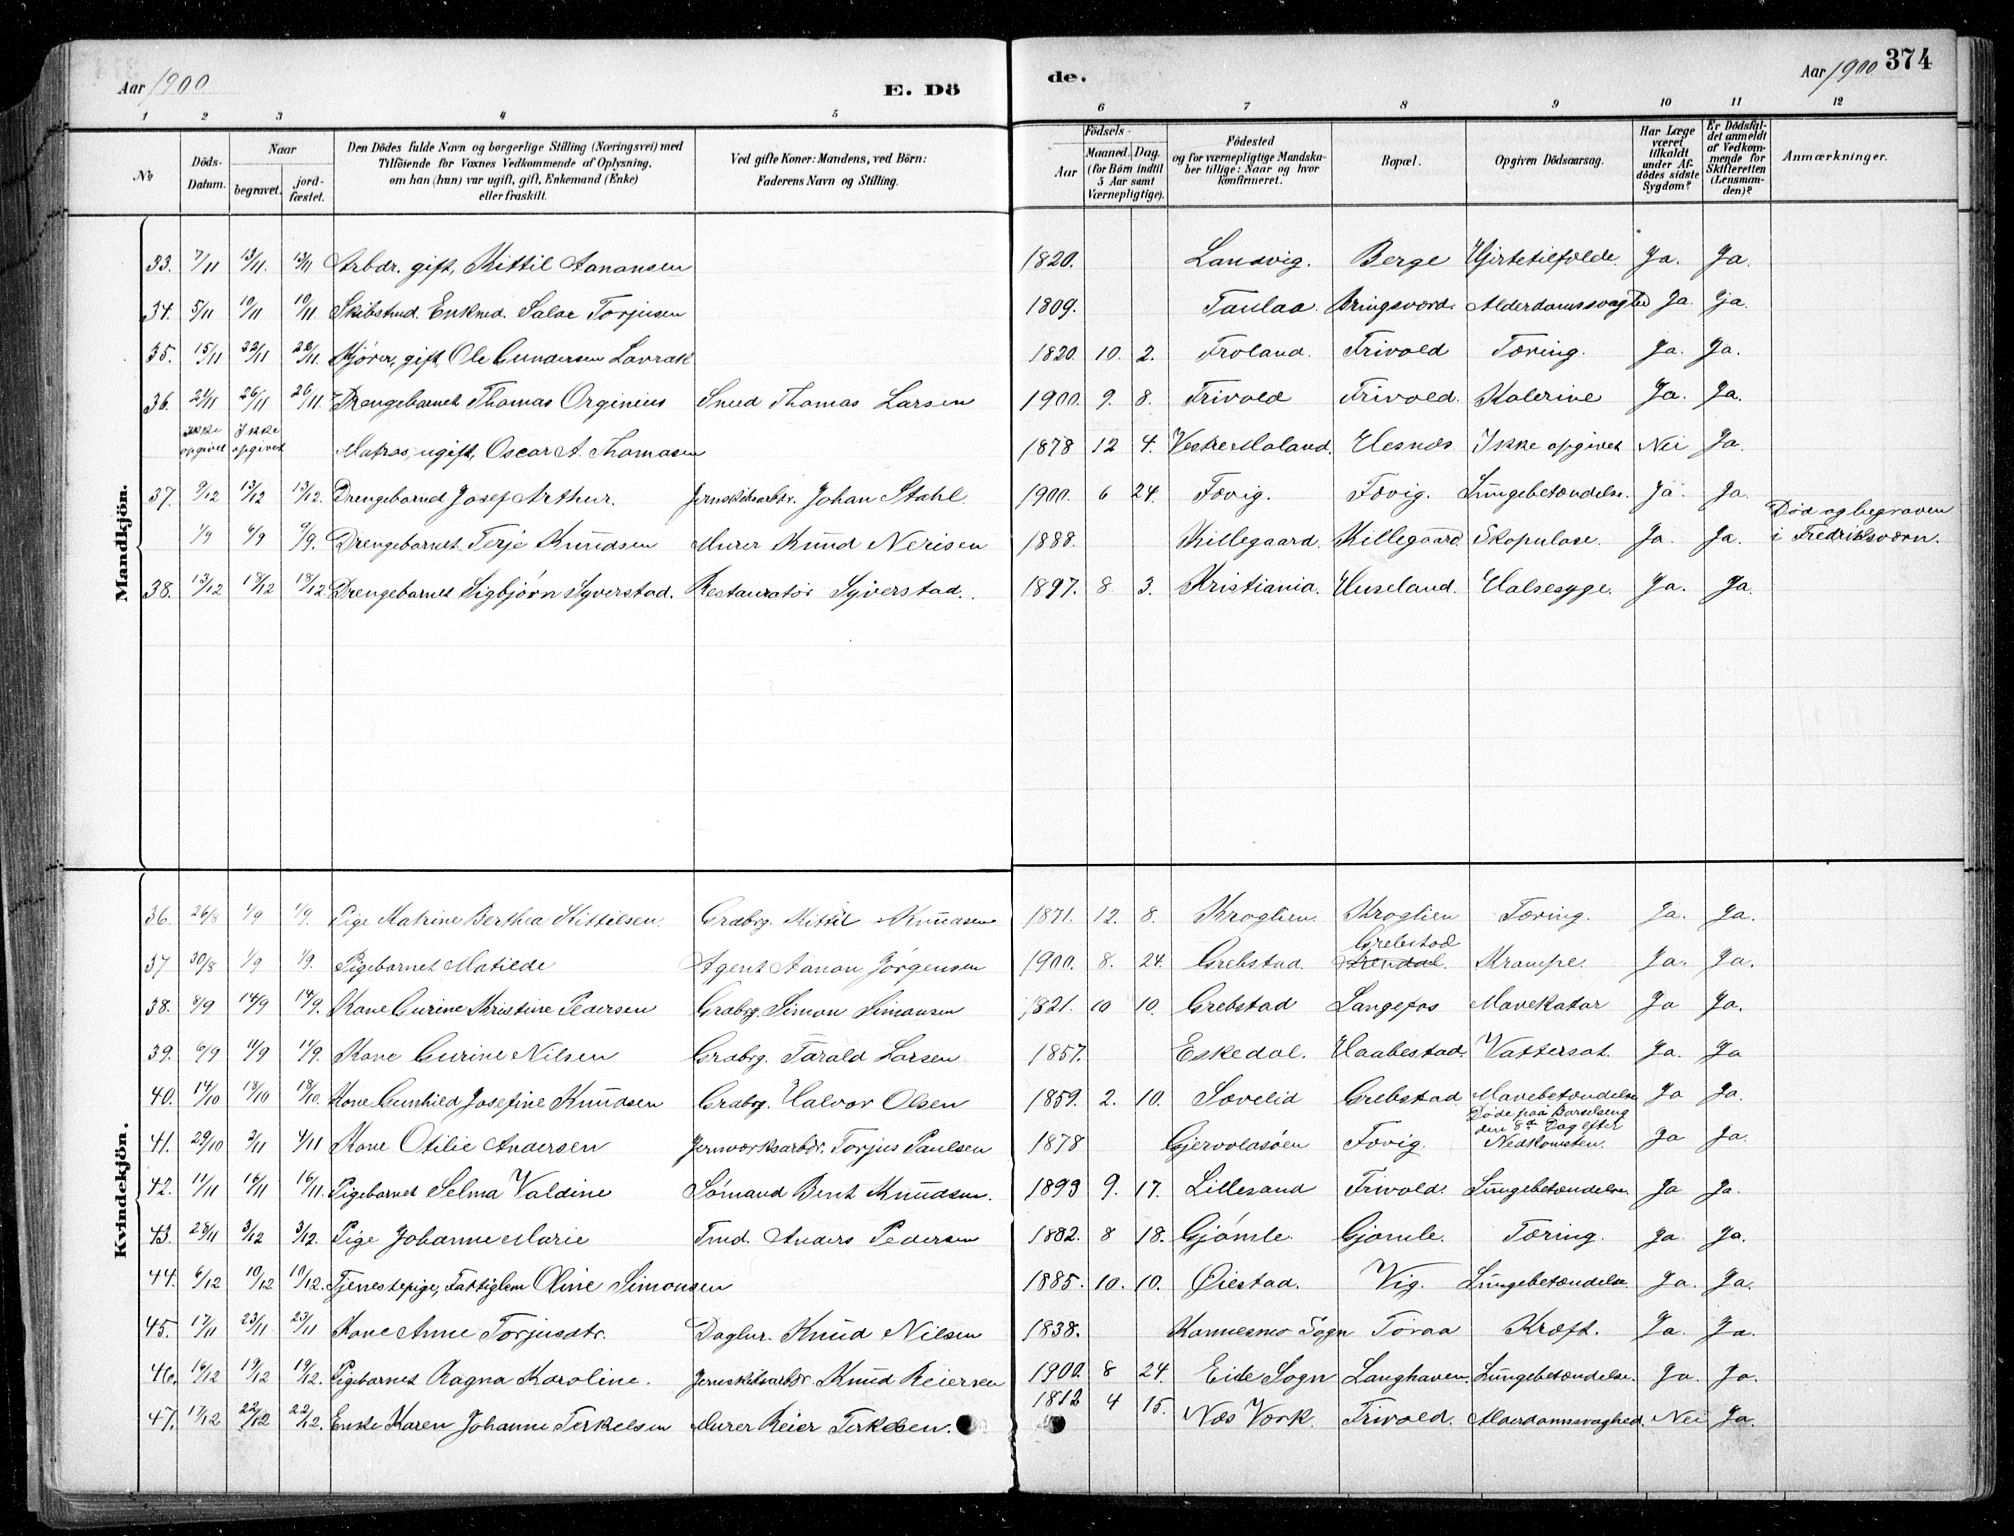 Aar 1900
E. Dö
de.
Aar 1900 374
1 2 3 4 5 6 7 8 9 10 11 12
No
Döds-Datum.
Naar
begravet.
jord-fæstet.
Den Dödes fulde Navn og borgerlige Stilling (Næringsvei) med
Tilföiende for Voxnes Vedkommende af Oplysning,
om han (hun) var ugift, gift, Enkemand (Enke)
eller fraskilt.
Ved gifte Koner: Mandens, ved Börn:
Faderens Navn og Stilling.
Födsels-
Aar
Maaned. Dag.
(for Børn indtil
5 Aar samt
Værnepligtige).
Födested
og for værnepligtige Mandska-
ber tillige: Naar og hvor
konfirmeret.
Bopæl.
Opgiven Dödsaarsag.
Har Læge
været
tilkaldt
under Af-
dödes sidste
Sygdom?
Er Dödsfal-
det anmeldt
af Vedkom-
mende for
Skifteretten
(Lensman-
den)?
Anmærkninger.
Mandkjön.
33. 7/11 13/11. 13/11 Arbdr. gift, Kittil Aanonsen 1820. Landvig. Berge Hjertetilfælde. Ja. Ja.
34. 5/11 10/11 10/11. Skibstmd. Enkmd. Salve Torjusen 1809. Taulaa. Bringsværd. Alderdomssvaghed Ja. Ja.
35. 15/11 22/11 22/11. gift, Ole Gundersen Lavrak 1820. 10. 2. Froland. Frivold Tæring. Ja. Ja.
36. 21/11 26/11 26/11. Drengebarnet Thomas Orginius Smed Thomas Larsen 1900. 9. 8. Frivold Frivold. Kolerine Ja. Ja.
Ikke opgivet Ikke opgivet Matros, ugift, Oscar A. Thomasen 1878 12 4. Vestre Moland. Hesnæs Ikke opgivet Nei Ja.
37. 9/12 13/12 13/12. Drengebarnet Josef Arthur. Jernskibsarbdr. Johan Stahl 1900. 6 24. Fævig. Fævig. Lungebetændelse. Ja. Ja.
1/9 6/9 9/9. Drengebarnet Terje Knudsen Murer Knud Nerisen 1888. Killegaard. Killegaard. Skopulose. Ja. Ja. Død og begraven
i Fredriksværn.
38. 13/12 18/12 18/12 Drengebarnet Sigbjørn Syverstad. Restauratør Syverstad. 1897. 8 3. Kristiania. Huseland. Halsesyge. Ja. Ja.
Kvindekjön.
36. 26/8 1/9 1/9. Pige Katrine Berthea Kittilsen. Grdbrg. Kittil Knudsen 1871. 12. 8. Kroglien. Kroglien Tæring. Ja. Ja.
Grebstad
37 30/8 1/9 1/9. Pigebarnet Matilde Agent Aanon Jørgensen 1900. 8. 24. Grebstad. Arendal. Krampe. Ja. Ja.
38. 8/9 14/9 14/9. Kone Gurine Kristine Pedersen Grdbrg. Simon Simonsen 1821. 10 10. Grebstad Langefos Mavekatar Ja Ja.
39. 6/9 11/9 11/9. Kone Gurine Nilsen Grdbrg. Tarald Larsen 1857. Eskedal. Haabestad. Vattersot. Ja. Ja
40. 14/10 18/10 18/10. Kone Gunhild Josefine Knudsen Grdbrg. Halvor Olsen 1859. 2. 10. Sævelid Grebstad Mavebetændelse Ja Ja.
Døde paa Barselseng
den 8de Dag efter
41. 29/10 3/11 4/11 Kone Otilie Andersen Jernværksarbdr. Torjus Paulsen 1878 Gjervolasøen Fævig. Nedkomsten. Ja Ja.
42. 11/11 16/11 16/11. Pigebarnet Selma Valdine Sømand Bent Knudsen. 1893 9. 17. Lillesand Frivold. Lungebetændelse. Ja Ja.
43. 28/11 3/12 3/12. Pige Johanne Marie Tmd. Anders Pedersen 1882. 8 18. Gjømle. Gjømle. Tæring. Ja. Ja.
44. 6/12 10/12 10/12. Tjenestepige, Fattiglem Oline Simonsen 1885. 10. 10. Øiestad. Vig. Lungebetændelse. Ja. Ja.
45. 17/11 23/11 23/11 Kone Anne Torjusdtr. Daglnr. Knud Nilsen 1838. Kannesmo Sogn Toraa Kræft. Ja. Ja.
46. 14/12 19/12 19/12. Pigebarnet Ragna Karoline. Jernskibsarbdr. Knud Reiersen 1900. 8 24. Eide Sogn Langhaven. Lungebetændelse. Ja. Ja.
47. 17/12 22/12 22/12. Enke Karen Johanne Terkelsen Murer Reier Terkelsen. 1812 4 15. Næs Værk. Frivold. Alderdomssvaghed. Nei Ja.